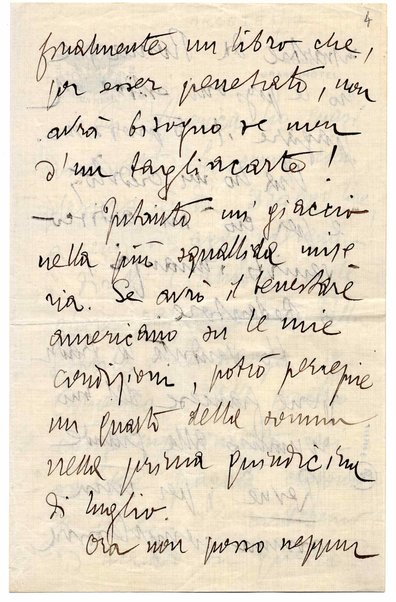 4
finalmente un libro che,
per esser penetrato, non
avrà bisogno se non
d'un tagliacarte!
—. Intanto mi giaccio
nella più squallida mise
ria. Se avrò il benestare
americano su le mie
condizioni, potrò percepire
un quarto della somma
nella prima quindicina
di luglio.
Ora non posso neppur